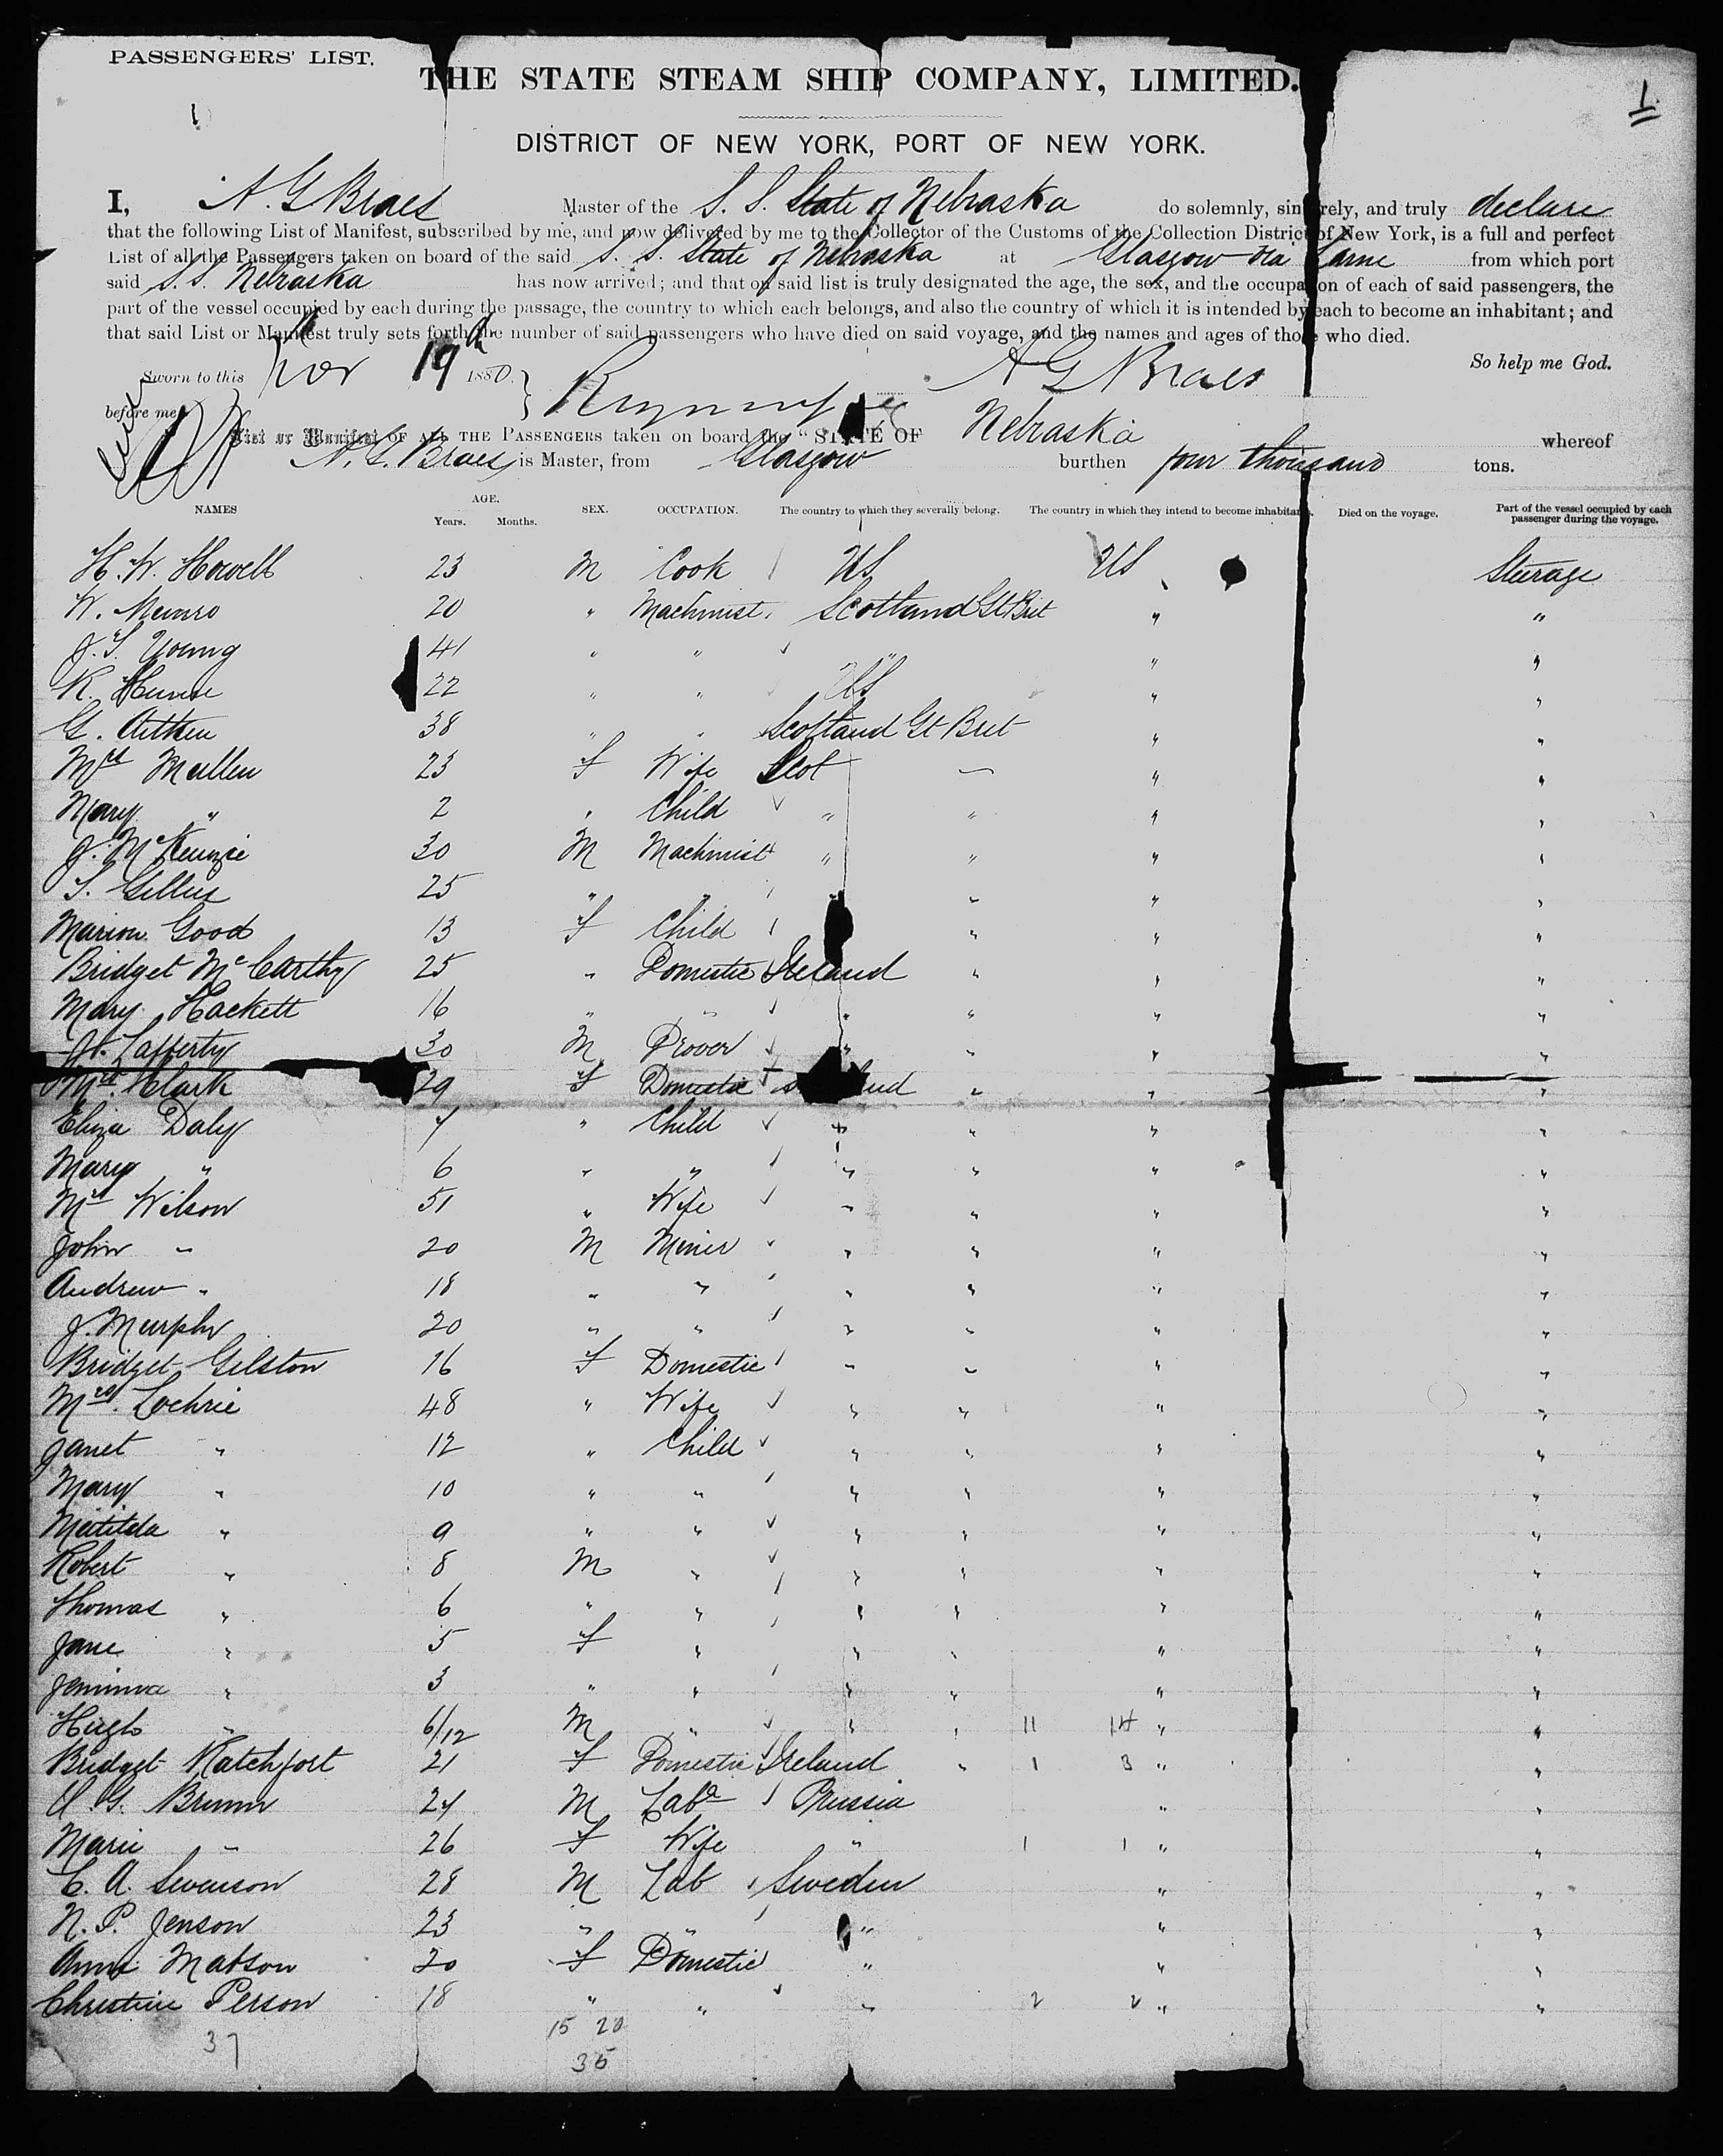 PASSENGERS' LIST.
THE STATE STEAM SHIP COMPANY, LIMITED.
1
DISTRICT OF NEW YORK, PORT OF NEW YORK.
I, A. G Braes Master of the S. S. State of Nebraska do solemnly, sincerely, and truly declare
that the following List of Manifest, subscribed by me, and now delivered by me to the Collector of the Customs of the Collection District of New York, is a full and perfect
List of all the Passengers taken on board of the said S. S. State of Nebraska at Glasgow via Larne from which port
said S.S. Nebraska has now arrived; and that on said list is truly designated the age, the sex, and the occupation of each of said passengers, the
part of the vessel occupied by each during the passage, the country to which each belongs, and also the country of which it is intended by each to become an inhabitant; and
that said List or Manifest truly sets forth the number of said passengers who have died on said voyage, and the names and ages of those who died.
So help me God.
Sworn to this Nov 19th 1880. A G Braes
before me
List or Manifest OF ALL THE PASSENGERS taken on board the "STATE OF Nebraska whereof
A. G. Braes is Master, from Glasgow burthen four thousand tons.
NAMES AGE. Years. Months. SEX. OCCUPATION. The country to which they severally belong. The country in which they intend to become inhabitants. Died on the voyage. Part of the vessel occupied by each passenger during the voyage.
H. W. Howell 23 M Cook US US Steerage
W. Munro 20 " Machinist Scotland Gt Brit " "
J. S. Young 41 " " " " "
R. Hume 22 " " US " "
G. Aitken 38 " " Scotland Gt Brit " "
Mrs Mullen 23 F Wife Scot " " "
Mary " 2 " Child " " " "
J. McKenzie 30 M Machinist " " " "
S. Gillies 25 " " " " "
Marion Good 13 F Child " " "
Bridget McCarthy 25 " Domestic Ireland " " "
Mary Hackett 16 " " " " " "
J. Lafferty 30 M Drover " " " "
Mrs. Clark 29 F Domestic Scotland " " "
Eliza Daly 7 " Child " " " "
Mary " 6 " " " " " "
Mrs Wilson 51 " Wife " " " "
John " 20 M Miner " " " "
Andrew " 18 " " " " " "
J. Murphy 20 " " " " " "
Bridget Gilston 16 F Domestic " " " "
Mrs. Lochrie 48 " Wife " " " "
Janet " 12 " Child " " " "
Mary " 10 " " " " " "
Matilda " 9 " " " " " "
Robert " 8 M " " " " "
Thomas " 6 " " " " " "
Jane " 5 F " " " " "
Jemima " 3 " " " " " "
Hugh " 6/12 M " " " 11 14 " "
Bridget Ratchfort 21 F Domestic Ireland " 1 3 " "
A. G. Brunn 24 M Labr Prussia " "
Marie " 26 F Wife " 1 1 " "
C. A. Swenson 28 M Lab Sweden " "
N. P. Jenson 23 " " " " "
Anna Matson 20 F Domestic " " "
Christine Person 18 " " " 2 2 " "
15 20
37 35